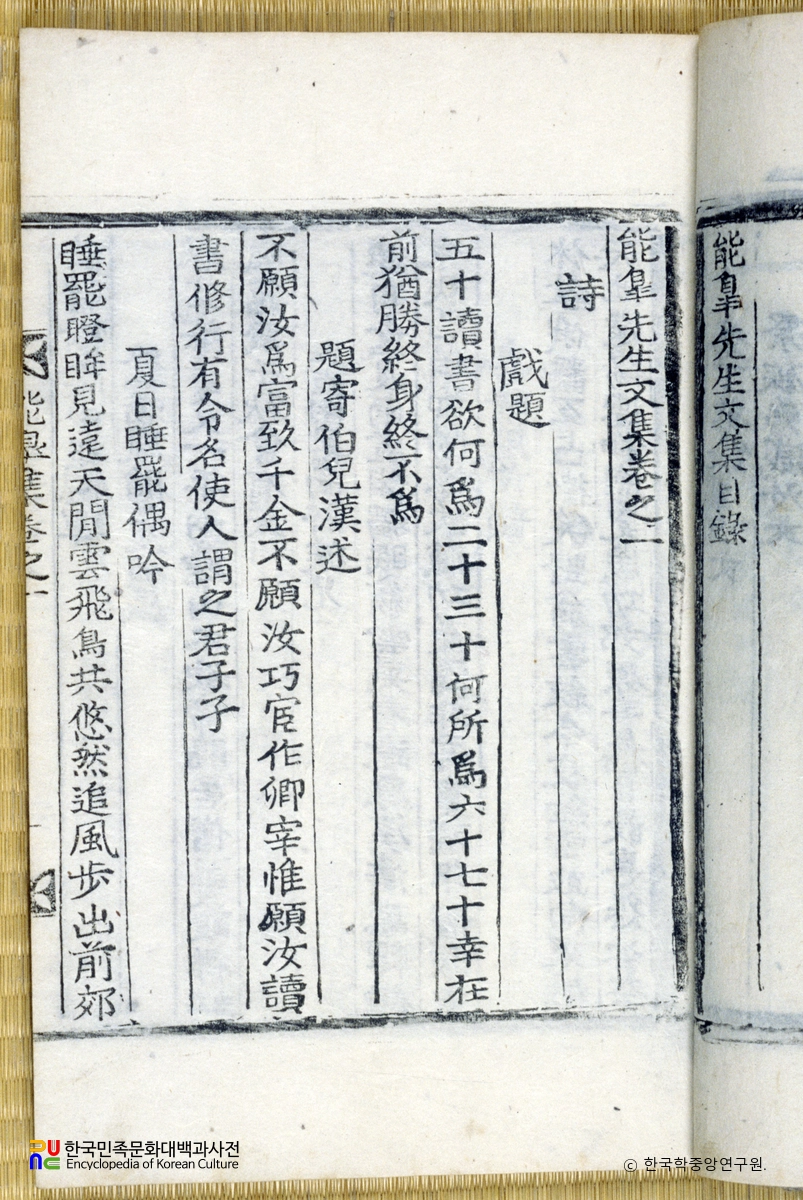 能皐先生文集目錄
能皐先生文集卷之一
詩
戲題
五十讀書欲何爲二十三十何所爲六十七十幸在
前猶勝終身終不爲
題寄伯兒漢述
不願汝爲富致千金不願汝巧宦作卿宰惟願汝讀
書修行有令名使人謂之君子子
夏日睡罷偶吟
睡罷瞪眸見遠天閒雲飛鳥共悠然追風步出前郊
能皐集卷之一
한국민족문화대백과사전
Encyclopedia of Korean Culture
ⓒ 한국학중앙연구원.